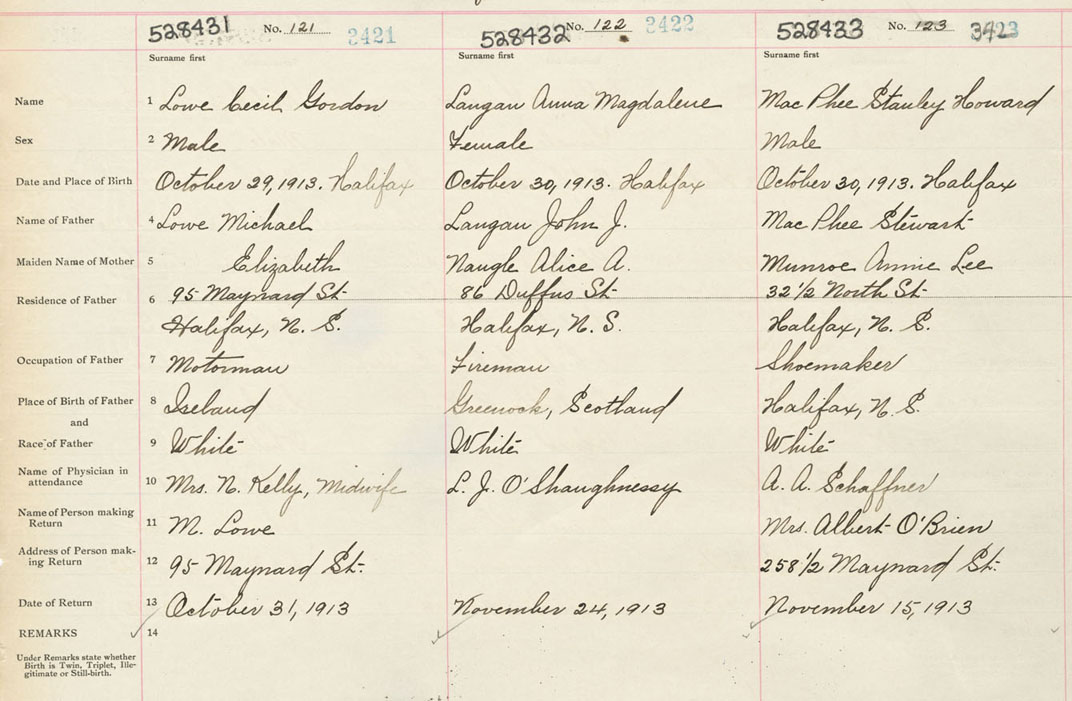 528431 No. 121 3421 528432 No. 122 3422 528433 No. 123 3423
Surname first Surname first Surname first
Name 1 Lowe Cecil Gordon Langan Anna Magdalene Mac Phee Stanley Howard
Sex 2 Male Female Male
Date and Place of Birth October 29, 1913. Halifax October 30, 1913. Halifax October 30, 1913. Halifax
Name of Father 4 Lowe Michael Langan John J. Mac Phee Stewart
Maiden Name of Mother 5 Elizabeth Naugle Alice A. Munroe Annie Lee
Residence of Father 6 95 Maynard St. 86 Duffus St. 32 1/2 North St.
Halifax, N. S. Halifax, N. S. Halifax, N. S.
Occupation of Father 7 Motorman Fireman Shoemaker
Place of Birth of Father 8 Greenock, Scotland Halifax, N. S.
and
Race of Father 9 White White White
Name of Physician in
attendance 10 Mrs. N. Kelly, Midwife L. J. O'Shaughnessy A. A. Schaffner
Name of Person making
Return 11 M. Lowe Mrs. Albert O'Brien
Address of Person mak-
ing Return 12 95 Maynard St. 258 1/2 Maynard St.
Date of Return 13 October 31, 1913 November 24, 1913 November 15, 1913
REMARKS 14
Under Remarks state whether
Birth is Twin, Triplet, Ille-
gitimate or Still-birth.